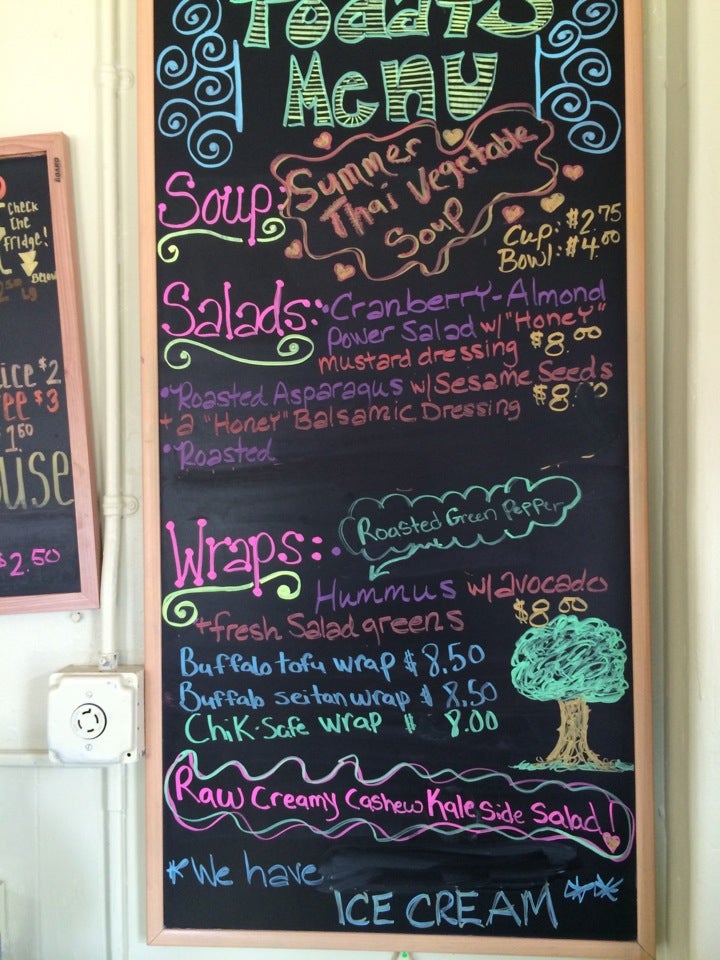 Today's
Menu
Soup:
Summer
Thai Vegetable
Soup
Cup: $2.75
Bowl: $4.00
Salads:
• Cranberry-Almond
Power Salad w/ "Honey"
mustard dressing $8.00
• Roasted Asparagus w/ Sesame Seeds
+ a "Honey" Balsamic Dressing $8.00
• Roasted
Wraps: •
Roasted Green Pepper
Hummus w/ avocado
+ fresh Salad greens $8.00
Buffalo tofu wrap $8.50
Buffalo seitan wrap $8.50
Chik-Safe wrap $8.00
Raw Creamy Cashew Kale Side Salad!
*We have
ICE CREAM **
Check
the
fridge!
Below
$2
$3
1.50
$2.50